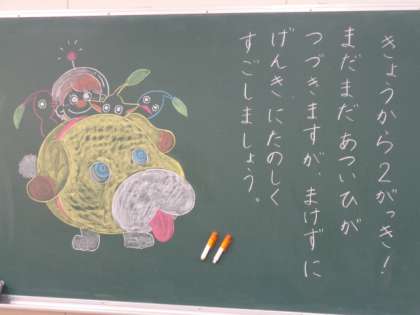 きょうから2がっき！
まだまだあついひが
つづきますが、まけずに
げんきにたのしく
すごしましょう。